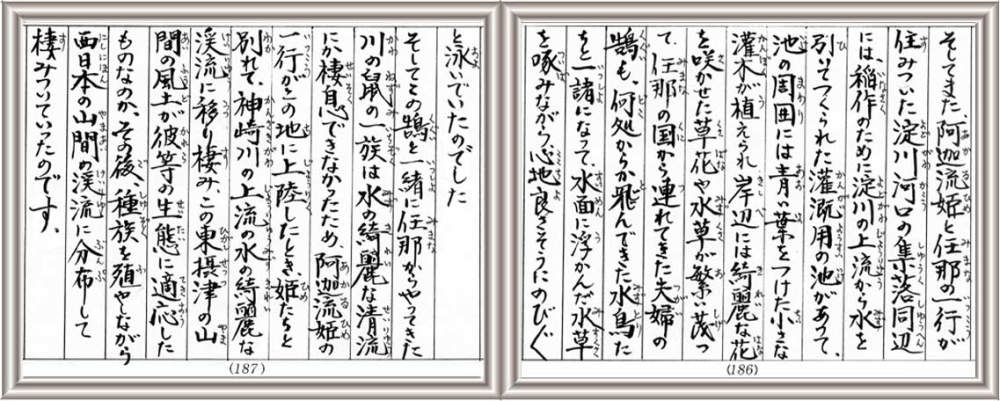 そしてまた、阿迦流姫と任那の一行が
住みついた淀川河口の集落周辺
には、稲作のために淀川の上流から水を
引いてつくられた灌漑用の池があって、
池の周囲には青い葉をつけた小さな
灌木が植えられ岸辺には綺麗な花
を咲かせた草花や水草が繁茂っ
て、任那の国から連れてきた夫婦の
鵠も、何処からか飛んできた水鳥た
と一諸になって、水面に浮かんだ水草
を啄みながら、心地良さそうにのびぐ
(186)
と泳いでいたのでした
そしてこの鵠と一緒に任那からやってきた
川の鼠の一族は水の綺麗な清流
にか棲息できなかったため、阿迦流姫の
一行がこの地に上陸したとき、姫たちと
別れて、神崎川の上流の水の綺麗な
渓流に移り棲み、この東摂津の山
間の風土が彼等の生態に適応した
ものなのか、その後、種族を殖やしながら
西日本の山間の渓流に分布して
棲みついていったのです。
(187)